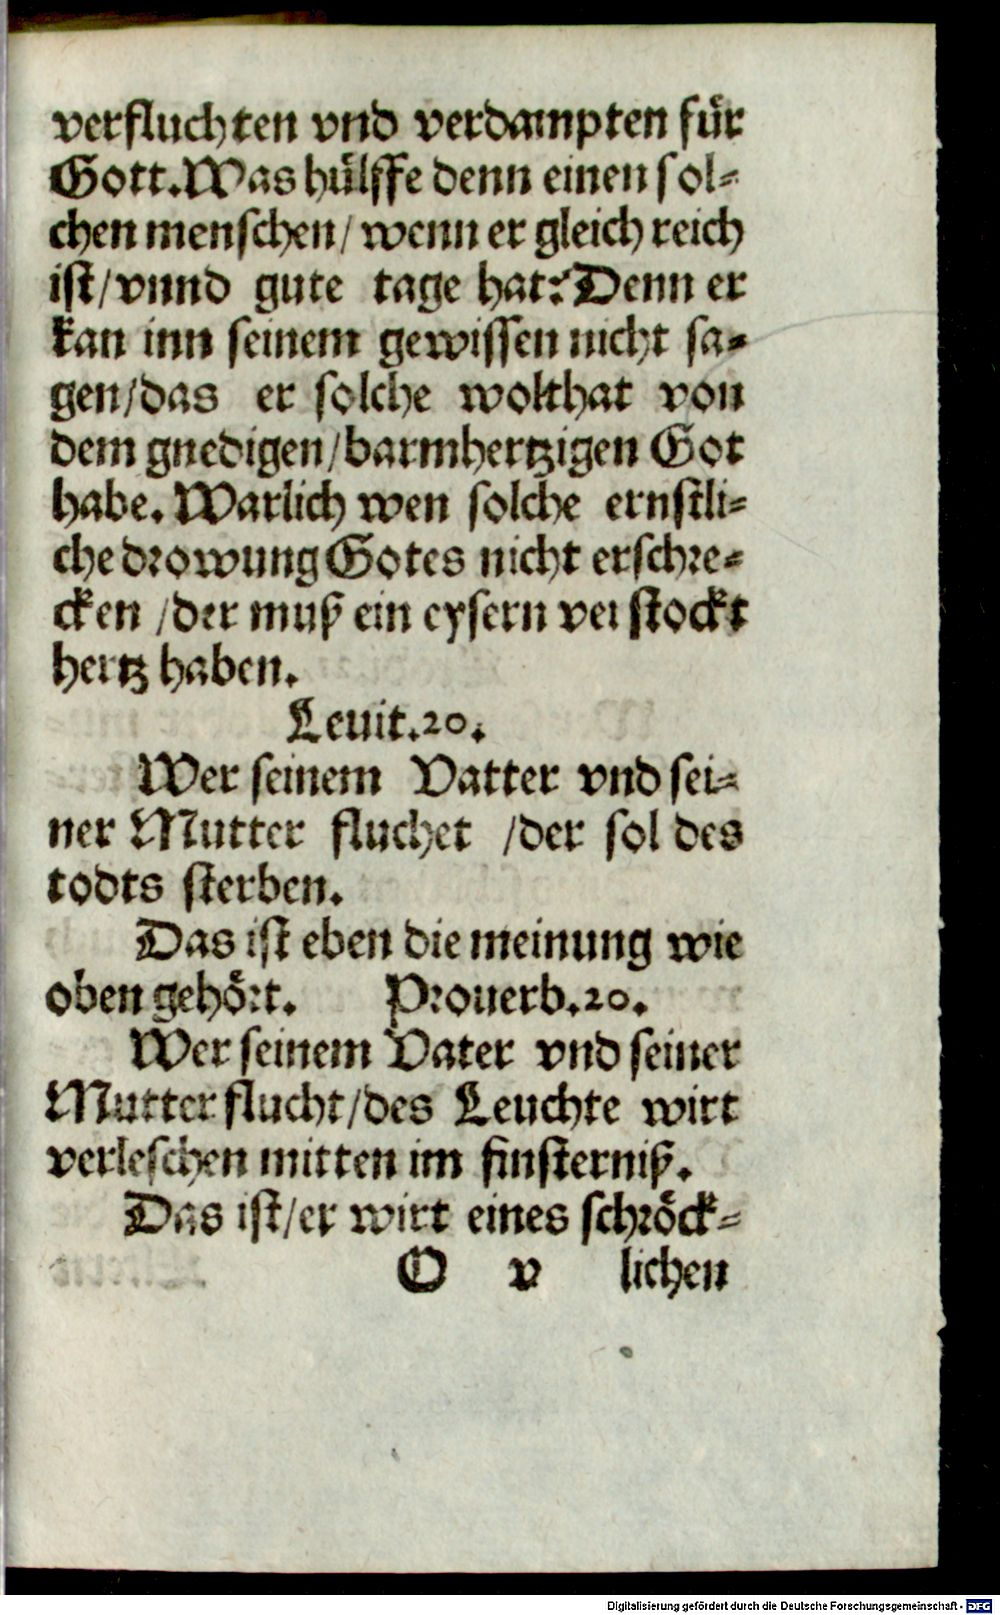 verfluchten vnd verdampten für
Gott. Was hülffe denn einen sol⸗
chen menschen/ wenn er gleich reich
ist/ vnnd gute tage hat? Denn er
kan inn seinem gewissen nicht sa⸗
gen/ das er solche wolthat von
dem gnedigen/ barmhertzigen Got
habe. Warlich wen solche ernstli⸗
che drowung Gotes nicht erschre⸗
cken /der muß ein eysern verstockt
hertz haben.
Leuit. 20.
Wer seinem Vatter vnd sei⸗
ner Mutter fluchet /der sol des
todts sterben.
Das ist eben die meinung wie
oben gehört. Prouerb. 20.
Wer seinem Vater vnd seiner
Mutter flucht/ des Leuchte wirt
verleschen mitten im finsterniß.
Das ist/ er wirt eines schröck⸗
O v lichen
Digitalisierung gefördert durch die Deutsche Forschungsgemeinschaft - DFG